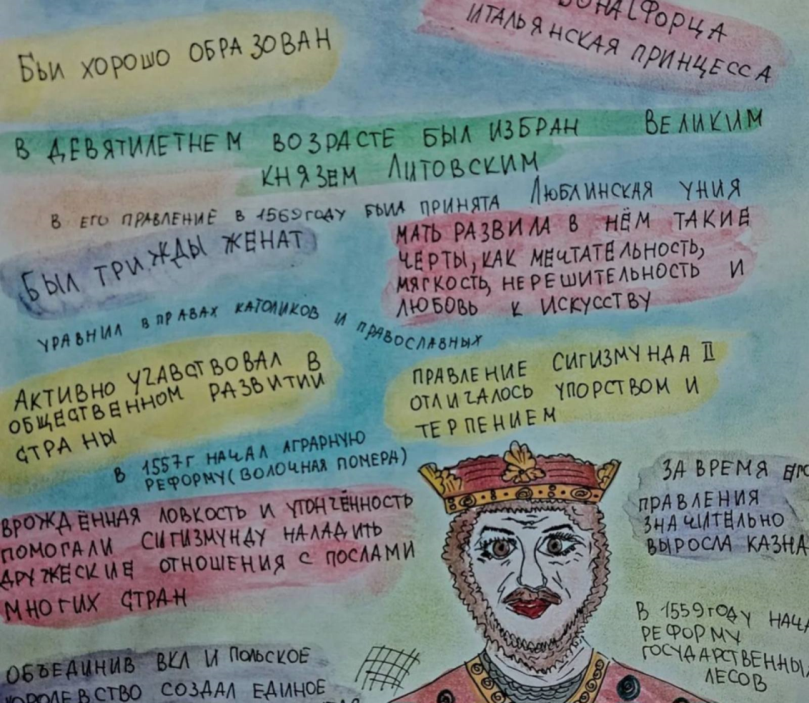 БЫЛ ХОРОШО ОБРАЗОВАН
БОНА СФОРЦА
ИТАЛЬЯНСКАЯ ПРИНЦЕССА
В ДЕВЯТИЛЕТНЕМ ВОЗРАСТЕ БЫЛ ИЗБРАН ВЕЛИКИМ
КНЯЗЕМ ЛИТОВСКИМ
В ЕГО ПРАВЛЕНИЕ В 1569 ГОДУ БЫЛА ПРИНЯТА ЛЮБЛИНСКАЯ УНИЯ
БЫЛ ТРИЖДЫ ЖЕНАТ
МАТЬ РАЗВИЛА В НЁМ ТАКИЕ
ЧЕРТЫ, КАК МЕЧТАТЕЛЬНОСТЬ,
МЯГКОСТЬ, НЕРЕШИТЕЛЬНОСТЬ И
ЛЮБОВЬ К ИСКУССТВУ
УРАВНИЛ В ПРАВАХ КАТОЛИКОВ И ПРАВОСЛАВНЫХ
АКТИВНО УЧАВСТВОВАЛ В
ОБЩЕСТВЕННОМ РАЗВИТИИ
СТРАНЫ
ПРАВЛЕНИЕ СИГИЗМУНДА II
ОТЛИЧАЛОСЬ УПОРСТВОМ И
ТЕРПЕНИЕМ
В 1557Г НАЧАЛ АГРАРНУЮ
РЕФОРМУ (ВОЛОЧНАЯ ПОМЕРА)
ВРОЖДЁННАЯ ЛОВКОСТЬ И УТОНЧЁННОСТЬ
ПОМОГАЛИ СИГИЗМУНДУ НАЛАДИТЬ
ДРУЖЕСКИЕ ОТНОШЕНИЯ С ПОСЛАМИ
МНОГИХ СТРАН
ЗА ВРЕМЯ ЕГО
ПРАВЛЕНИЯ
ЗНАЧИТЕЛЬНО
ВЫРОСЛА КАЗНА
В 1559 ГОДУ НАЧАЛ
РЕФОРМУ
ГОСУДАРСТВЕННЫХ
ЛЕСОВ
ОБЪЕДИНИВ ВКЛ И ПОЛЬСКОЕ
КОРОЛЕВСТВО СОЗДАЛ ЕДИНОЕ